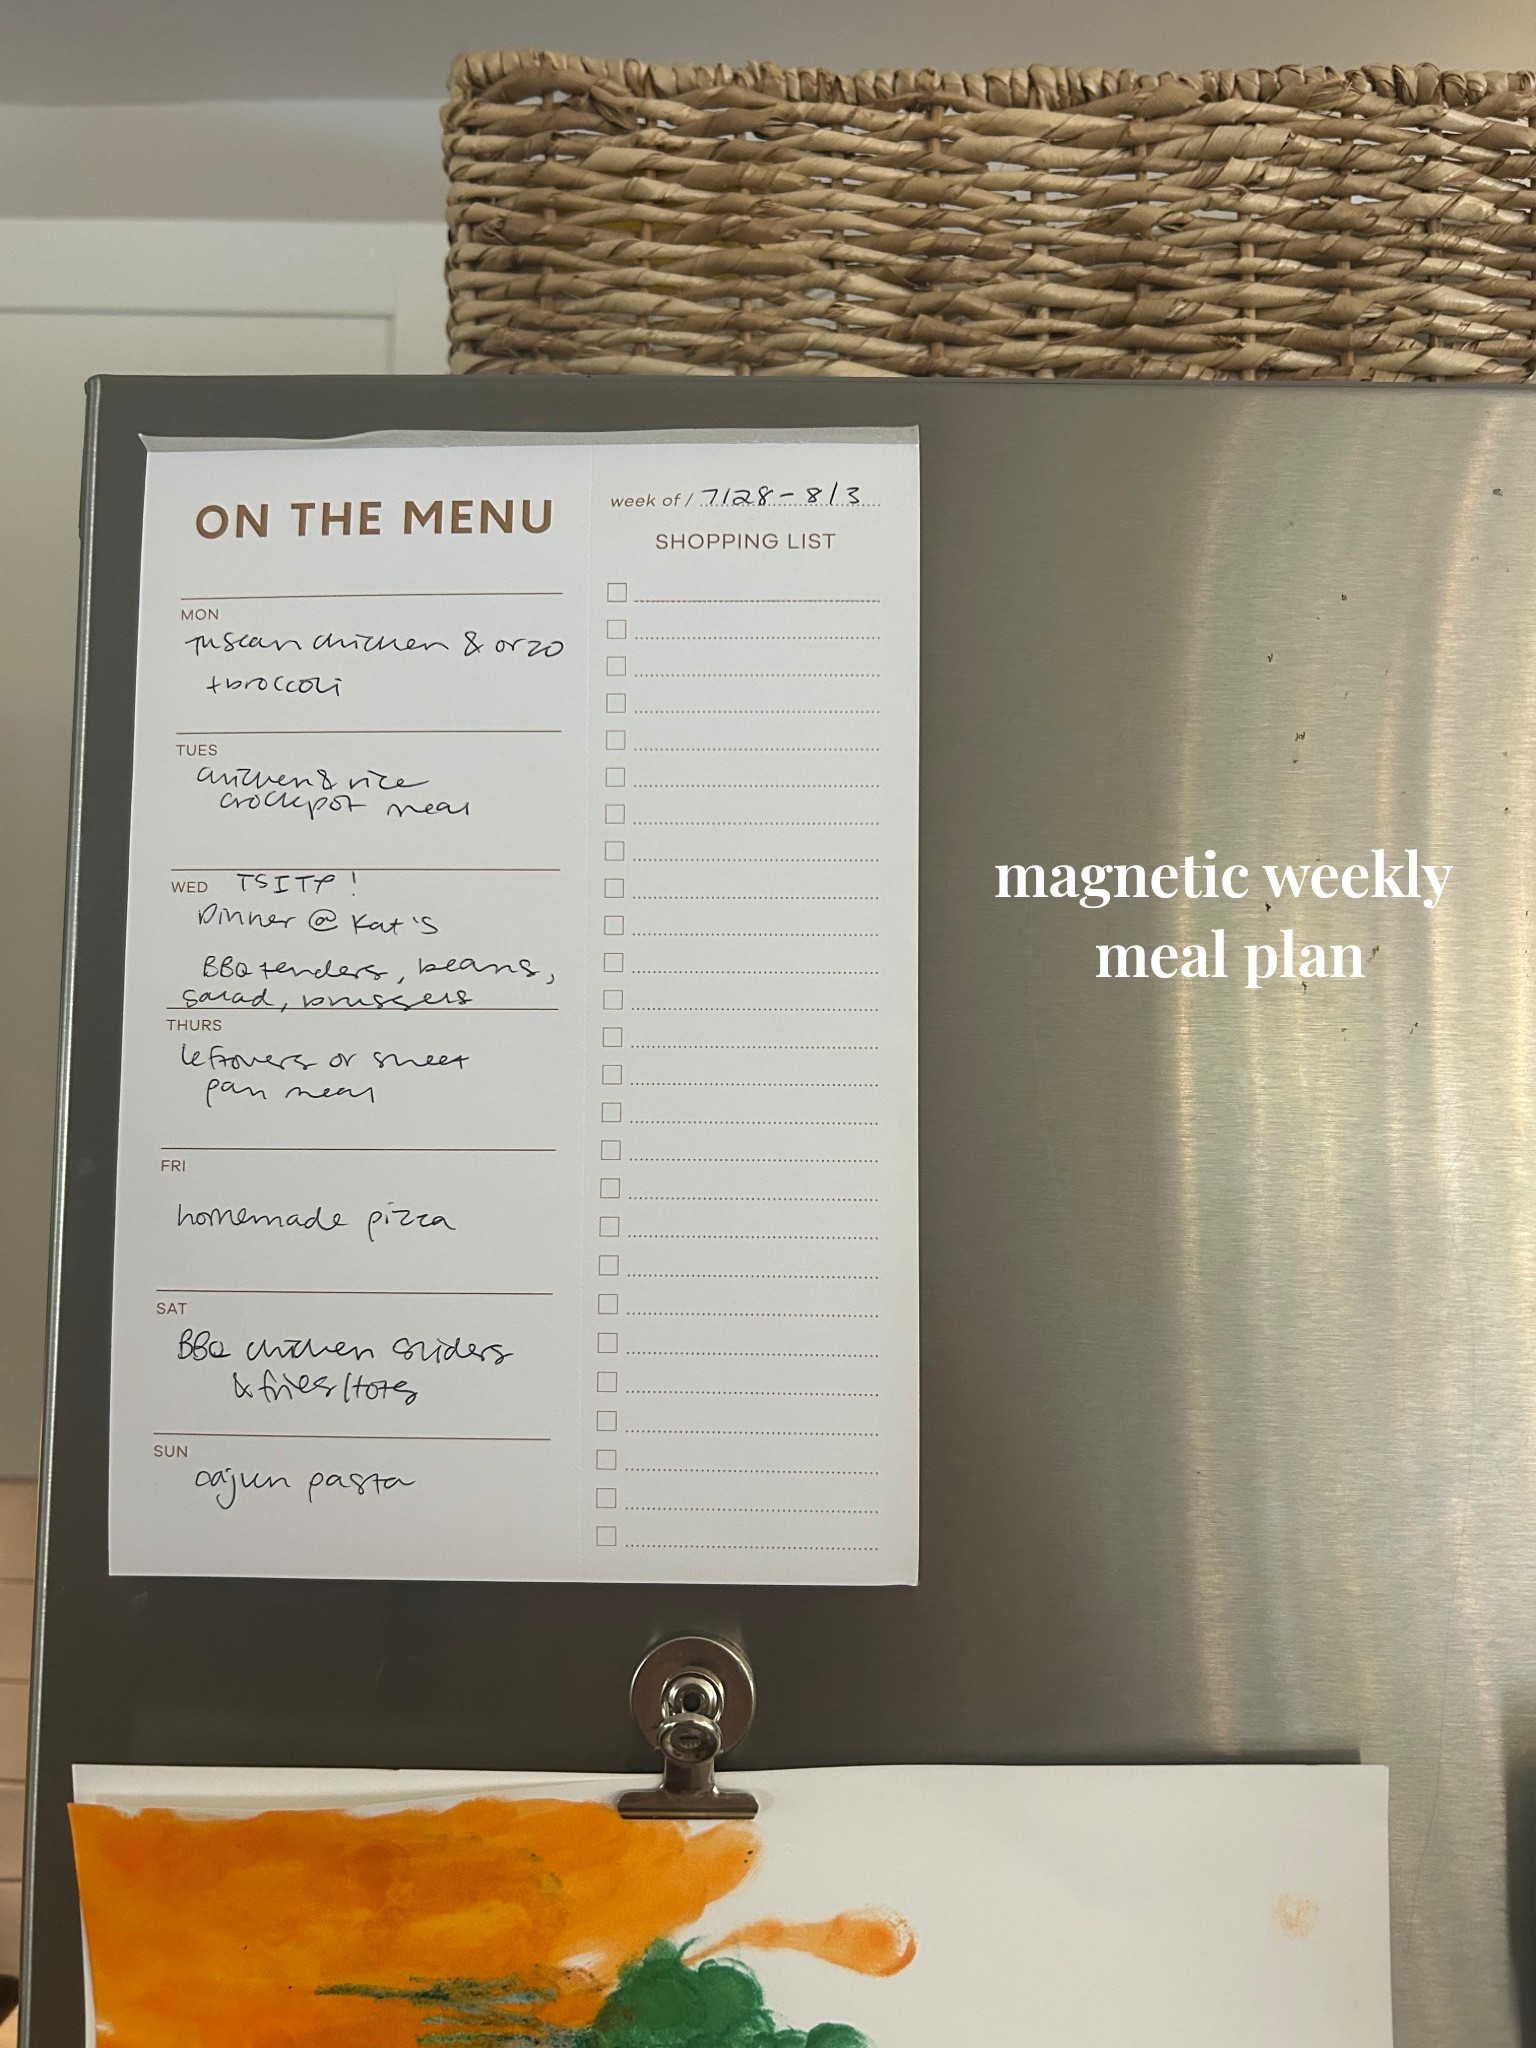 ON THE MENU
week of / 7/28 - 8/3
SHOPPING LIST
MON
tuscan chicken & orzo
+ broccoli
TUES
chicken & rice
crockpot meal
WED TSITP!
Dinner @ Kat's
BBQ tenders, beans,
salad, brussels
THURS
leftovers or sheet
pan meal
FRI
homemade pizza
SAT
BBQ chicken sliders
& fries/tots
SUN
cajun pasta
magnetic weekly
meal plan